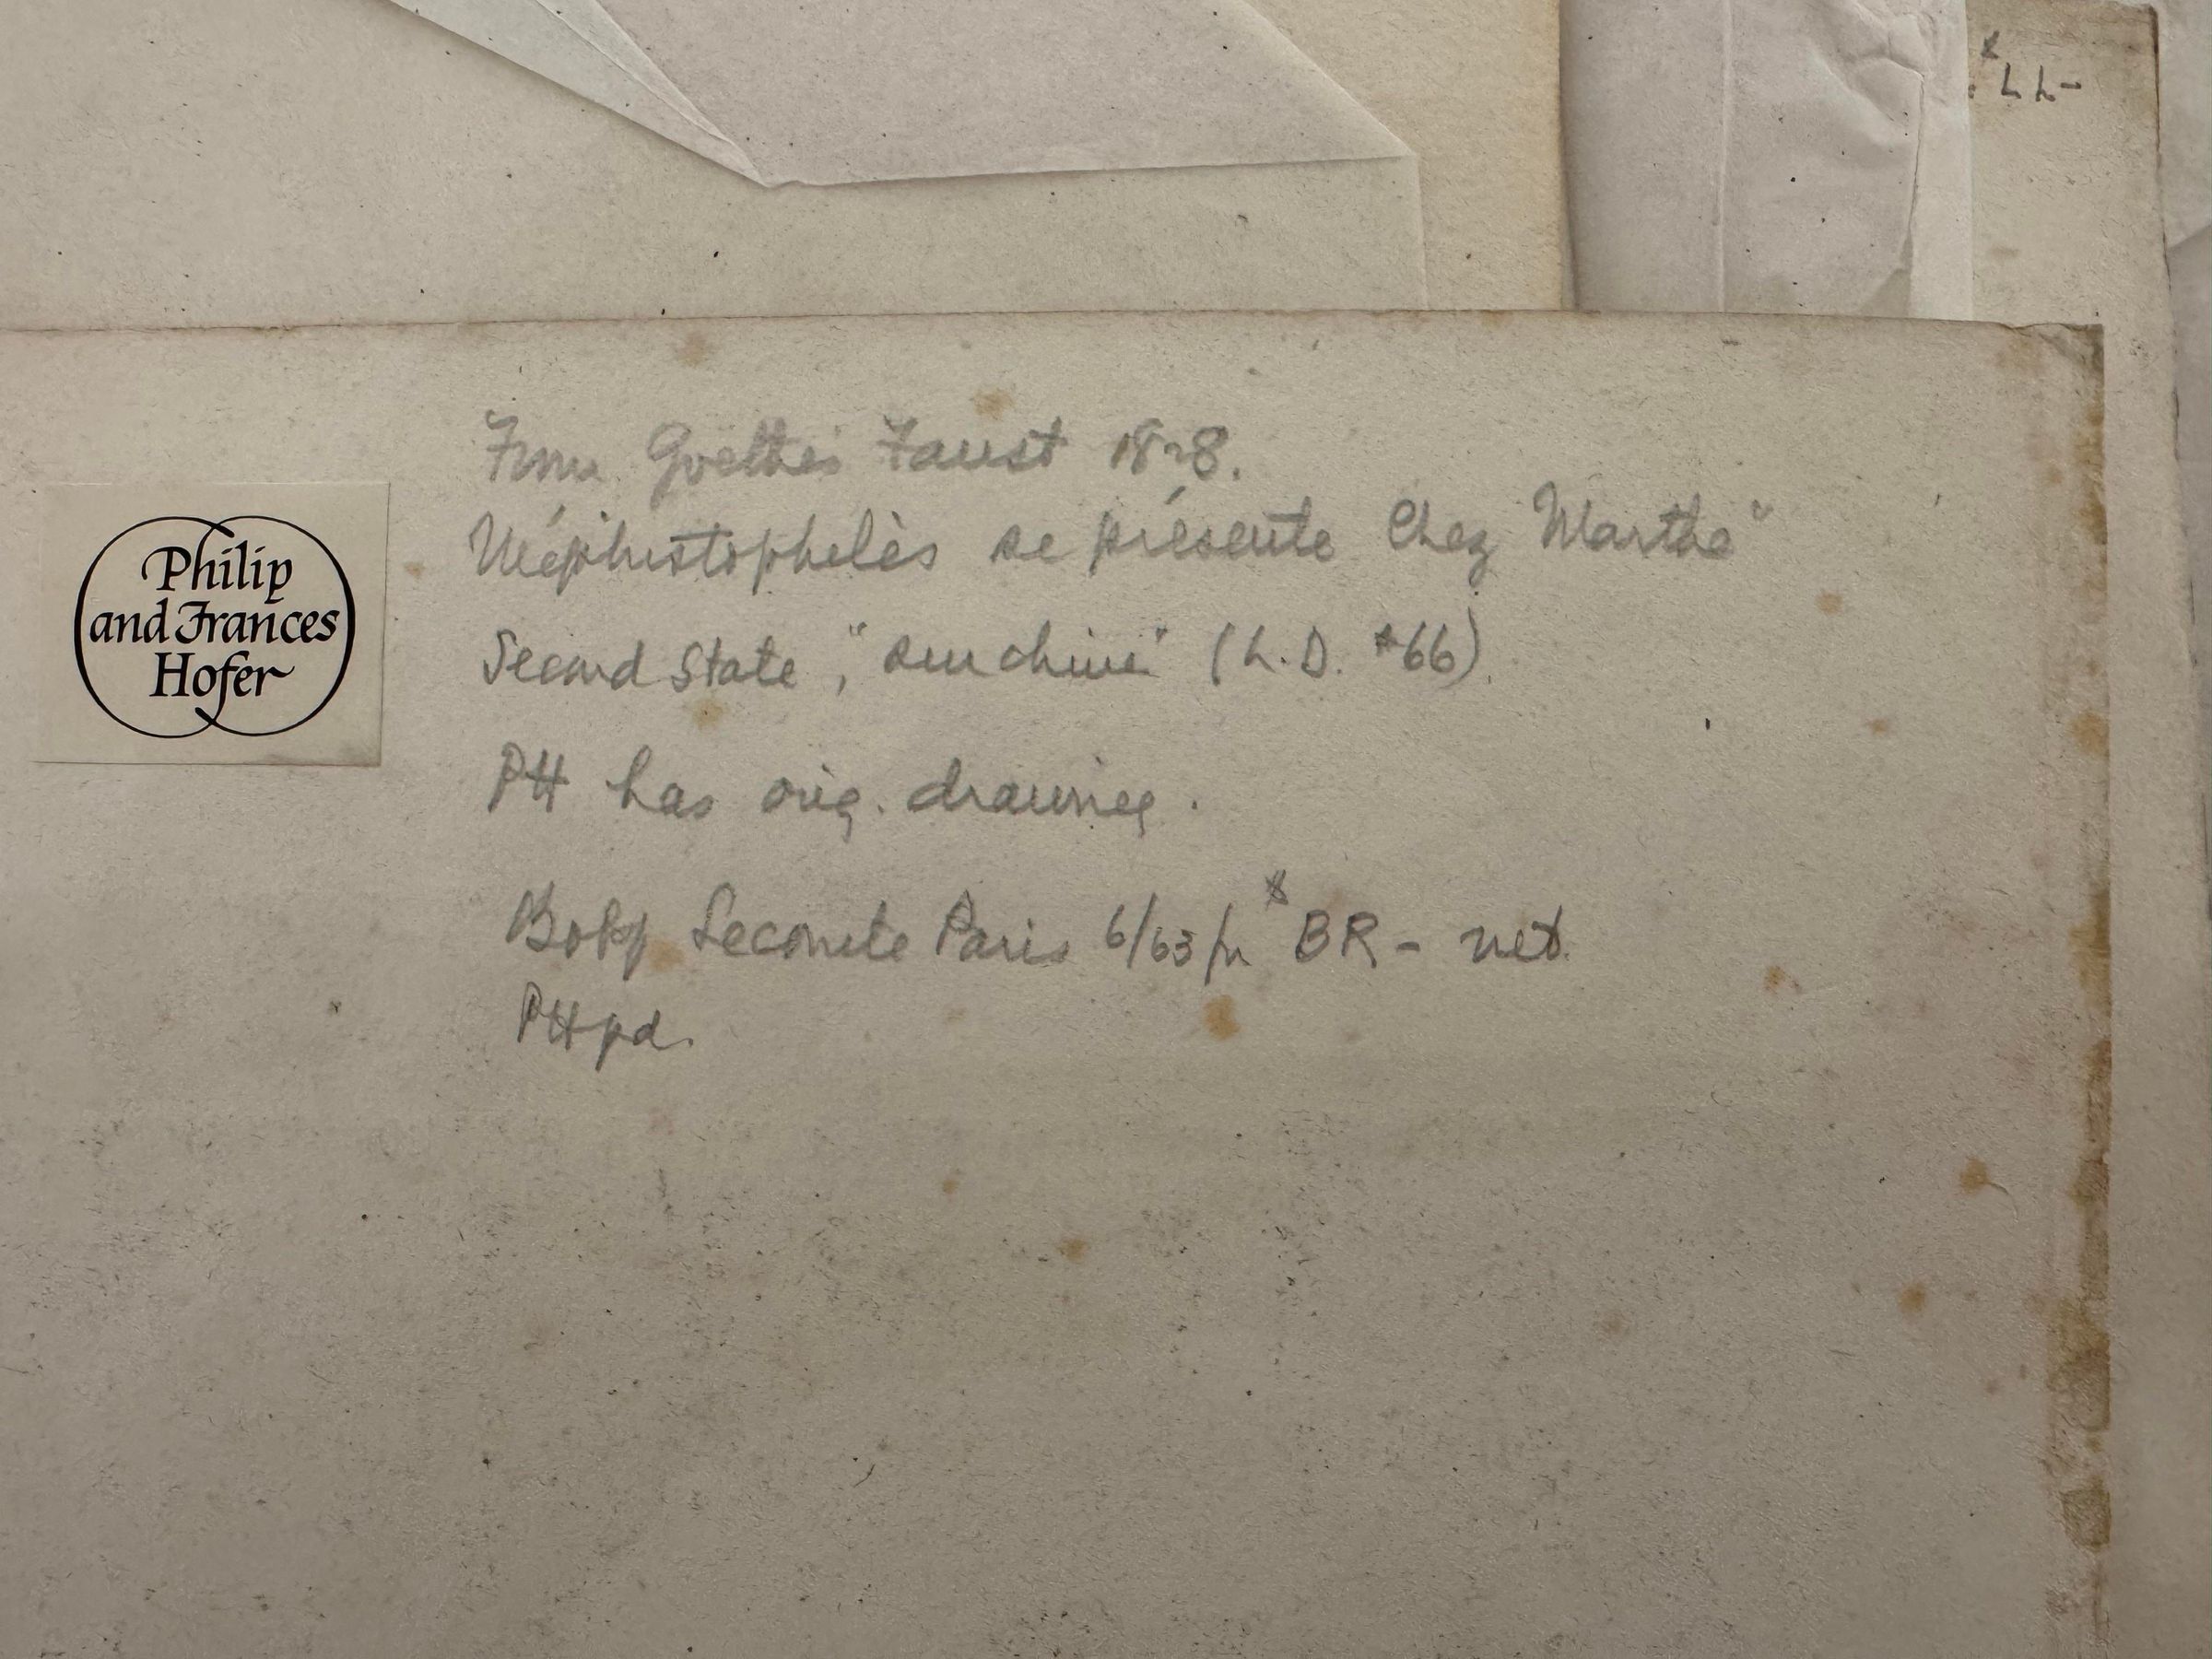 $
LL-
From Goethes Faust 1828.
Méphistophelès se présente Chez Marthe"
Philip
and Frances
Hofer
Second State, "sur chine" (L.D. #66).
PH has orig. drawing.
Lecomte Paris 6/63 fr $ BR - net.
PH pd.